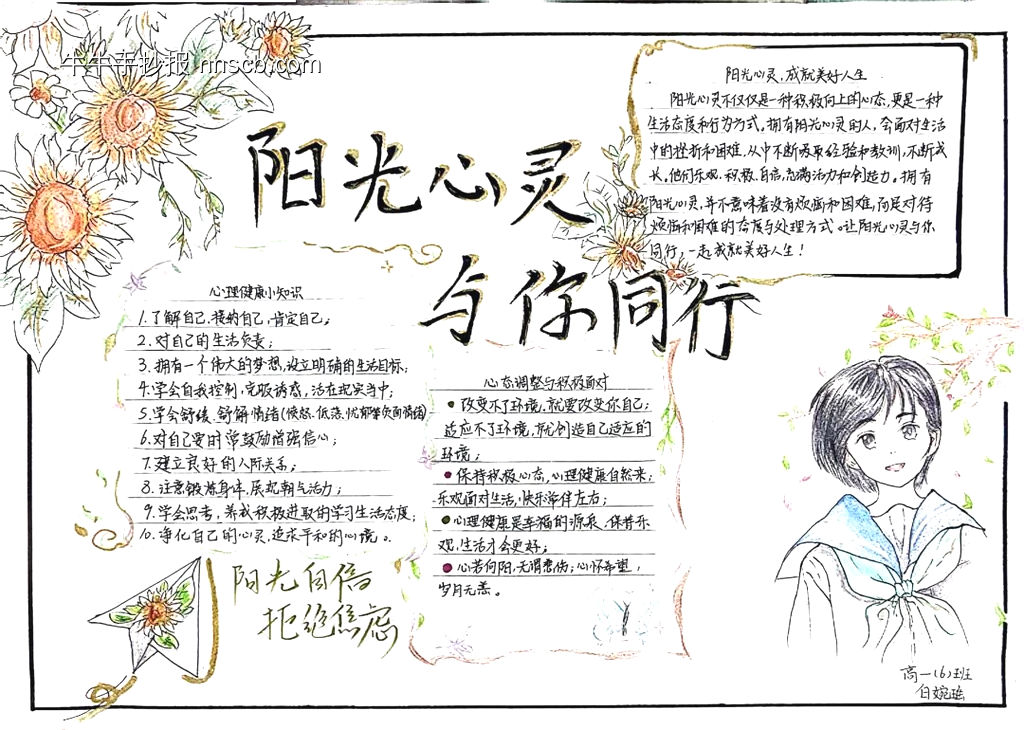 牛牛手抄报 nnscb.com
阳光心灵
与你同行
阳光心灵,成就美好人生
阳光心灵不仅仅是一种积极向上的心态,更是一种
生活态度和行为方式。拥有阳光心灵的人,会面对生活
中的挫折和困难,从中不断吸取经验和教训,不断成
长。他们乐观、积极、自信,充满活力和创造力。拥有
阳光心灵,并不意味着没有烦恼和困难,而是对待
烦恼和困难的态度与处理方式。让阳光心灵与你
同行,一起成就美好人生!
心理健康小知识
1.了解自己,接纳自己,肯定自己。
2.对自己的生活负责;
3.拥有一个伟大的梦想,设立明确的生活目标;
4.学会自我控制,克服诱惑,活在现实当中;
5.学会舒缓、舒解情绪(愤怒、低落、忧郁等负面情绪)
6.对自己要时常鼓励增强信心;
7.建立良好的人际关系;
8.注意锻炼身体,展现朝气活力;
9.学会思考,养成积极进取的学习生活态度;
10.净化自己的心灵,追求平和的心境。
心态调整与积极面对
改变不了环境,就要改变你自己;
适应不了环境,就创造自己适应的
环境;
保持积极心态,心理健康自然来;
乐观面对生活,快乐常伴左右;
心理健康是幸福的源泉,保持乐
观,生活才会更好;
心若向阳,无谓悲伤;心怀希望,
岁月无恙。
阳光自信
拒绝焦虑
高一(6)班
白婉瑶